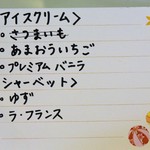 アイスクリーム〉
・さつまいも
・あまおういちご
・プレミアム バニラ
シャーベット〉
・ゆず
・ラ・フランス